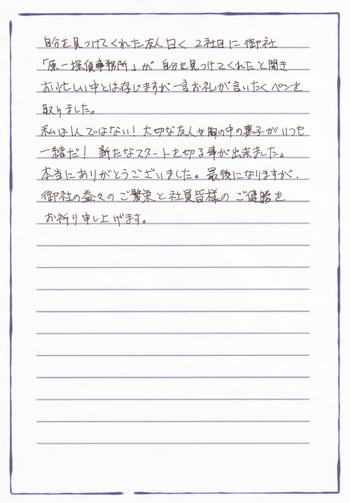 自分を見つけてくれた友人曰く2社目に御社
「原一探偵事務所」が自分を見つけてくれたと聞き
お忙しい中とは存じますが一言お礼が言いたくペンを
取りました。
私は1人ではない!大切な友人と胸の中の妻子がいつも
一緒だ!新たなスタートを切る事が出来ました。
本当にありがとうございました。最後になりますが、
御社の益々のご繁栄と社員皆様のご健勝を
お祈り申し上げます。